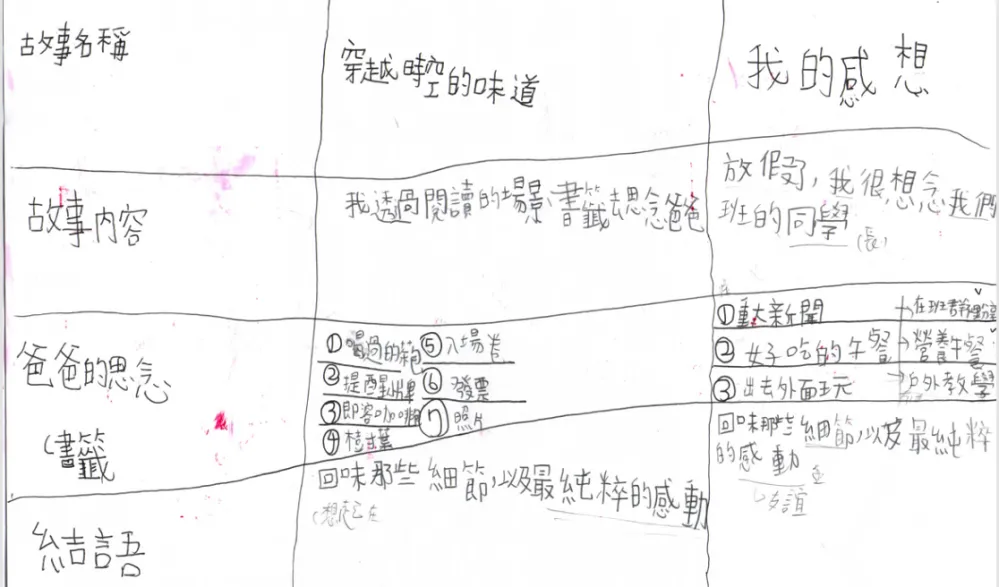 故事名稱
穿越時空的味道
我的感想
故事內容
我透過閱讀的場景、書籤去思念爸爸
放假了，我很想念我們
班的同學
(長)
爸爸的思念
(書籤
①喝過的
⑤入場卷
②提醒牌
⑥發票
③即容咖啡
⑦照片
④樹葉
①重大新聞
在班書群裡分享
②好吃的午餐
營養午餐
③出去外面玩
戶外教學
結語
回味那些細節，以及最純粹的感動
(想起在
回味那些細節，以及最純粹
的感動
友誼